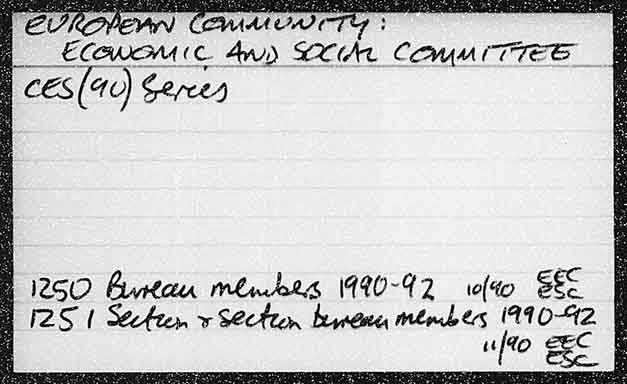 EUROPEAN COMMUNITY:
ECONOMIC AND SOCIAL COMMITTEE
CES(90) Series
1250 Bureau members 1990-92 10/90 EEC
ESC
1251 Section & section bureau members 1990-92
11/90 EEC
ESC